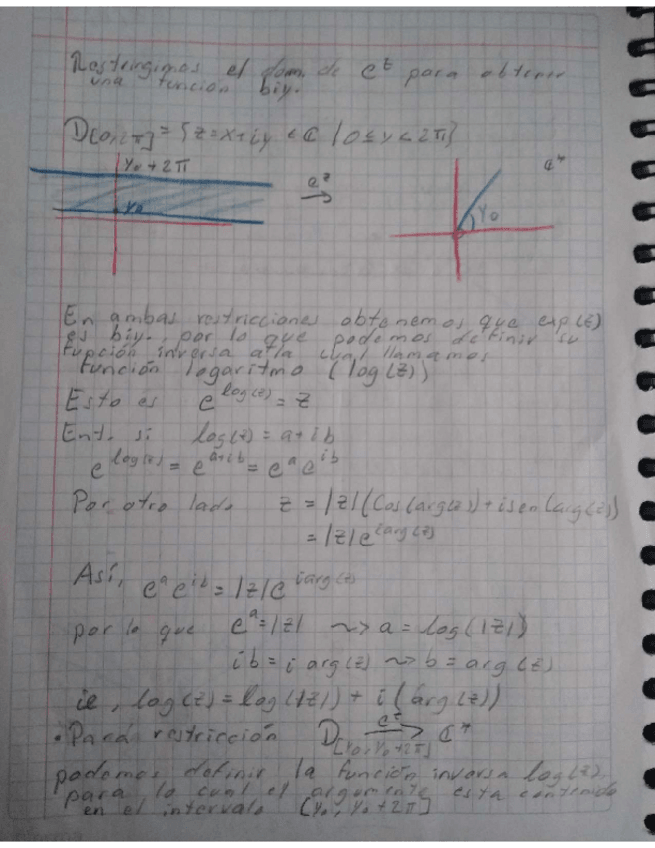 Restringimos el dom. de e^z para obtener
una función biy.
D[0,2π] = {z=x+iy ∈ ℂ | 0≤y<2π}
y₀+2π
y₀
e^z
→
ℂ*
y₀
En ambas restricciones obtenemos que exp(z)
es biy., por lo que podemos definir su
función inversa a la cual llamamos
función logaritmo (log(z))
Esto es e^log(z) = z
Ent. si log(z) = a+ib
e^log(z) = e^a+ib = e^a e^ib
Por otro lado z = |z|(Cos(arg(z))+isen(arg(z))
= |z|e^iarg(z)
Así, e^a e^ib = |z|e^iarg(z)
por lo que e^a=|z| ⇝ a = log(|z|)
ib = i arg(z) ⇝ b = arg(z)
ie, log(z) = log(|z|) + i(arg(z))
• Para restricción D[y₀, y₀+2π] e^z→ ℂ*
podemos definir la función inversa log(z)
para lo cual el argumento esta contenido
en el intervalo [y₀, y₀+2π]